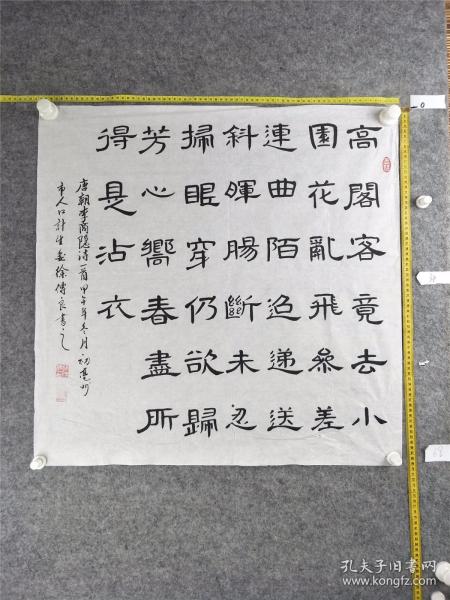 高閣客竟去小
園花亂飛參差
連曲陌迢遞送
斜暉腸斷未忍
掃眼穿仍欲歸
芳心嚮春盡所
得是沾衣
唐朝李商隱诗一首甲午年冬月初亳州
市人口计生委徐傳良書之
孔夫子旧书网
www.kongfz.com